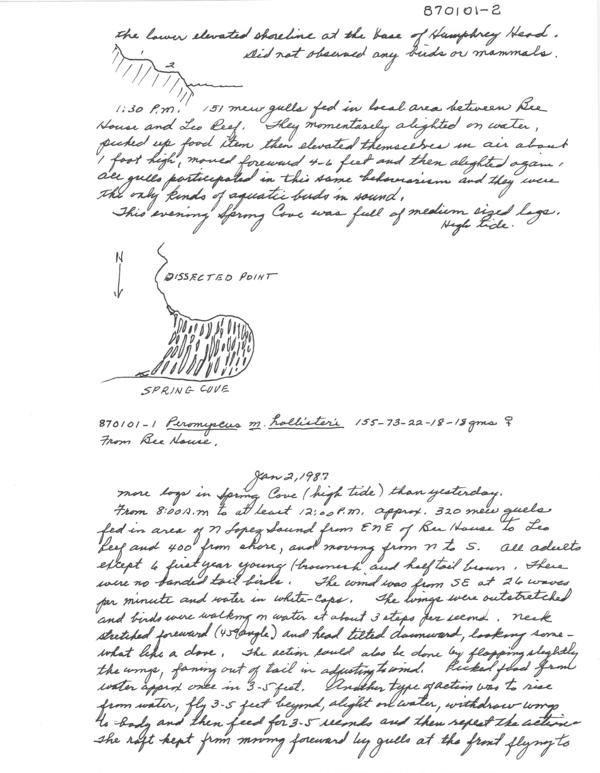 870101-2
the lower elevated shoreline at the base of Humphrey Head.
Did not observed any birds or mammals.
1
2
1:30 P.M. 151 mew gulls fed in local area between Bee
House and Leo Reef. They momentarely alighted on water,
picked up food item then elevated themselves in air about
1 foot high, moved foreward 4-6 feet and then alighted again,
all gulls participated in this same behaviorism and they were
the only kinds of aquatic birds in sound.
This evening Spring Cove was full of medium sized logs.
High tide.
N
DISSECTED POINT
SPRING COVE
870101-1 Peromyscus m. hollisteri 155-73-22-18-18 gms ♀
From Bee House.
Jan 2, 1987
more logs in Spring Cove (high tide) than yesterday.
From 8:00 A.M to at least 12:00 P.M. approx. 320 mew gulls
fed in area of N Lopez Sound from ENE of Bee House to Leo
Reef and 400' from shore, and moving from N to S. All adults
except 6 first year young (brownish and half tail brown. There
were no banded tail birds. The wind was from SE at 26 waves
per minute and water in white-caps. The wings were outstretched
and birds were walking on water at about 3 steps per second. Neck
stretched foreward (45° angle) and head tilted downward, looking some-
what like a dove. The action could also be done by flapping slightly
the wings, faning out of tail in adjusting to wind. Picked food from
water approx once in 3-5 feet. Another type of action was to rise
from water, fly 3-5 feet beyond, alight on water, withdraw wings
to body and then feed for 3-5 seconds and then repeat the action.
The raft kept from moving foreward by gulls at the front flying to